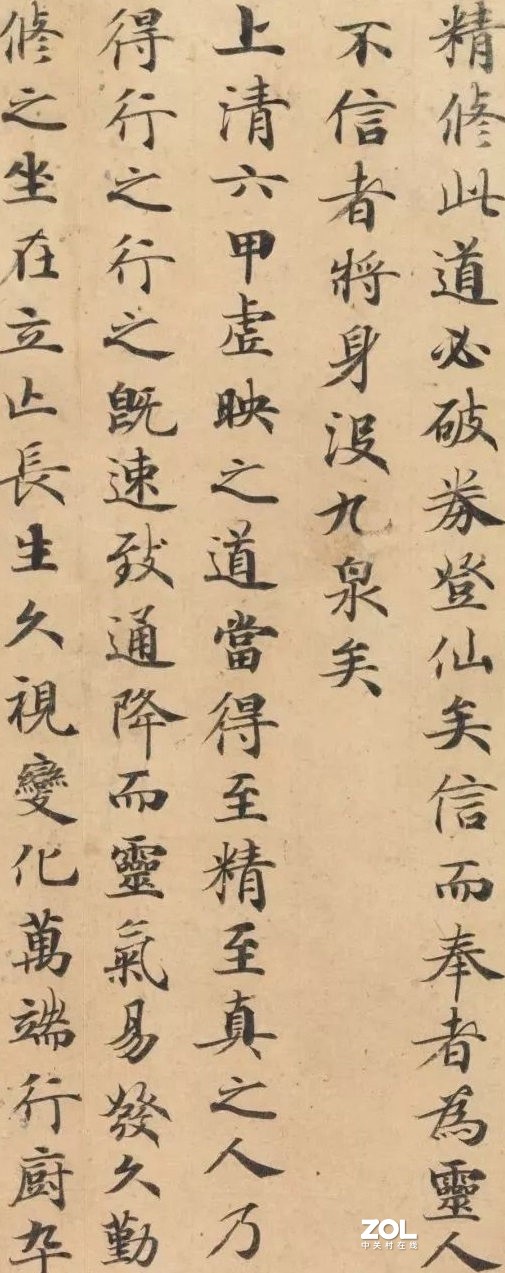 精修此道必破券登仙矣信而奉者為靈人
不信者將身没九泉矣
上清六甲虛映之道當得至精至真之人乃
得行之行之既速致通降而靈氣易發久勤
修之坐在立亡長生久視變化萬端行廚卒
ZOL
中关村在线